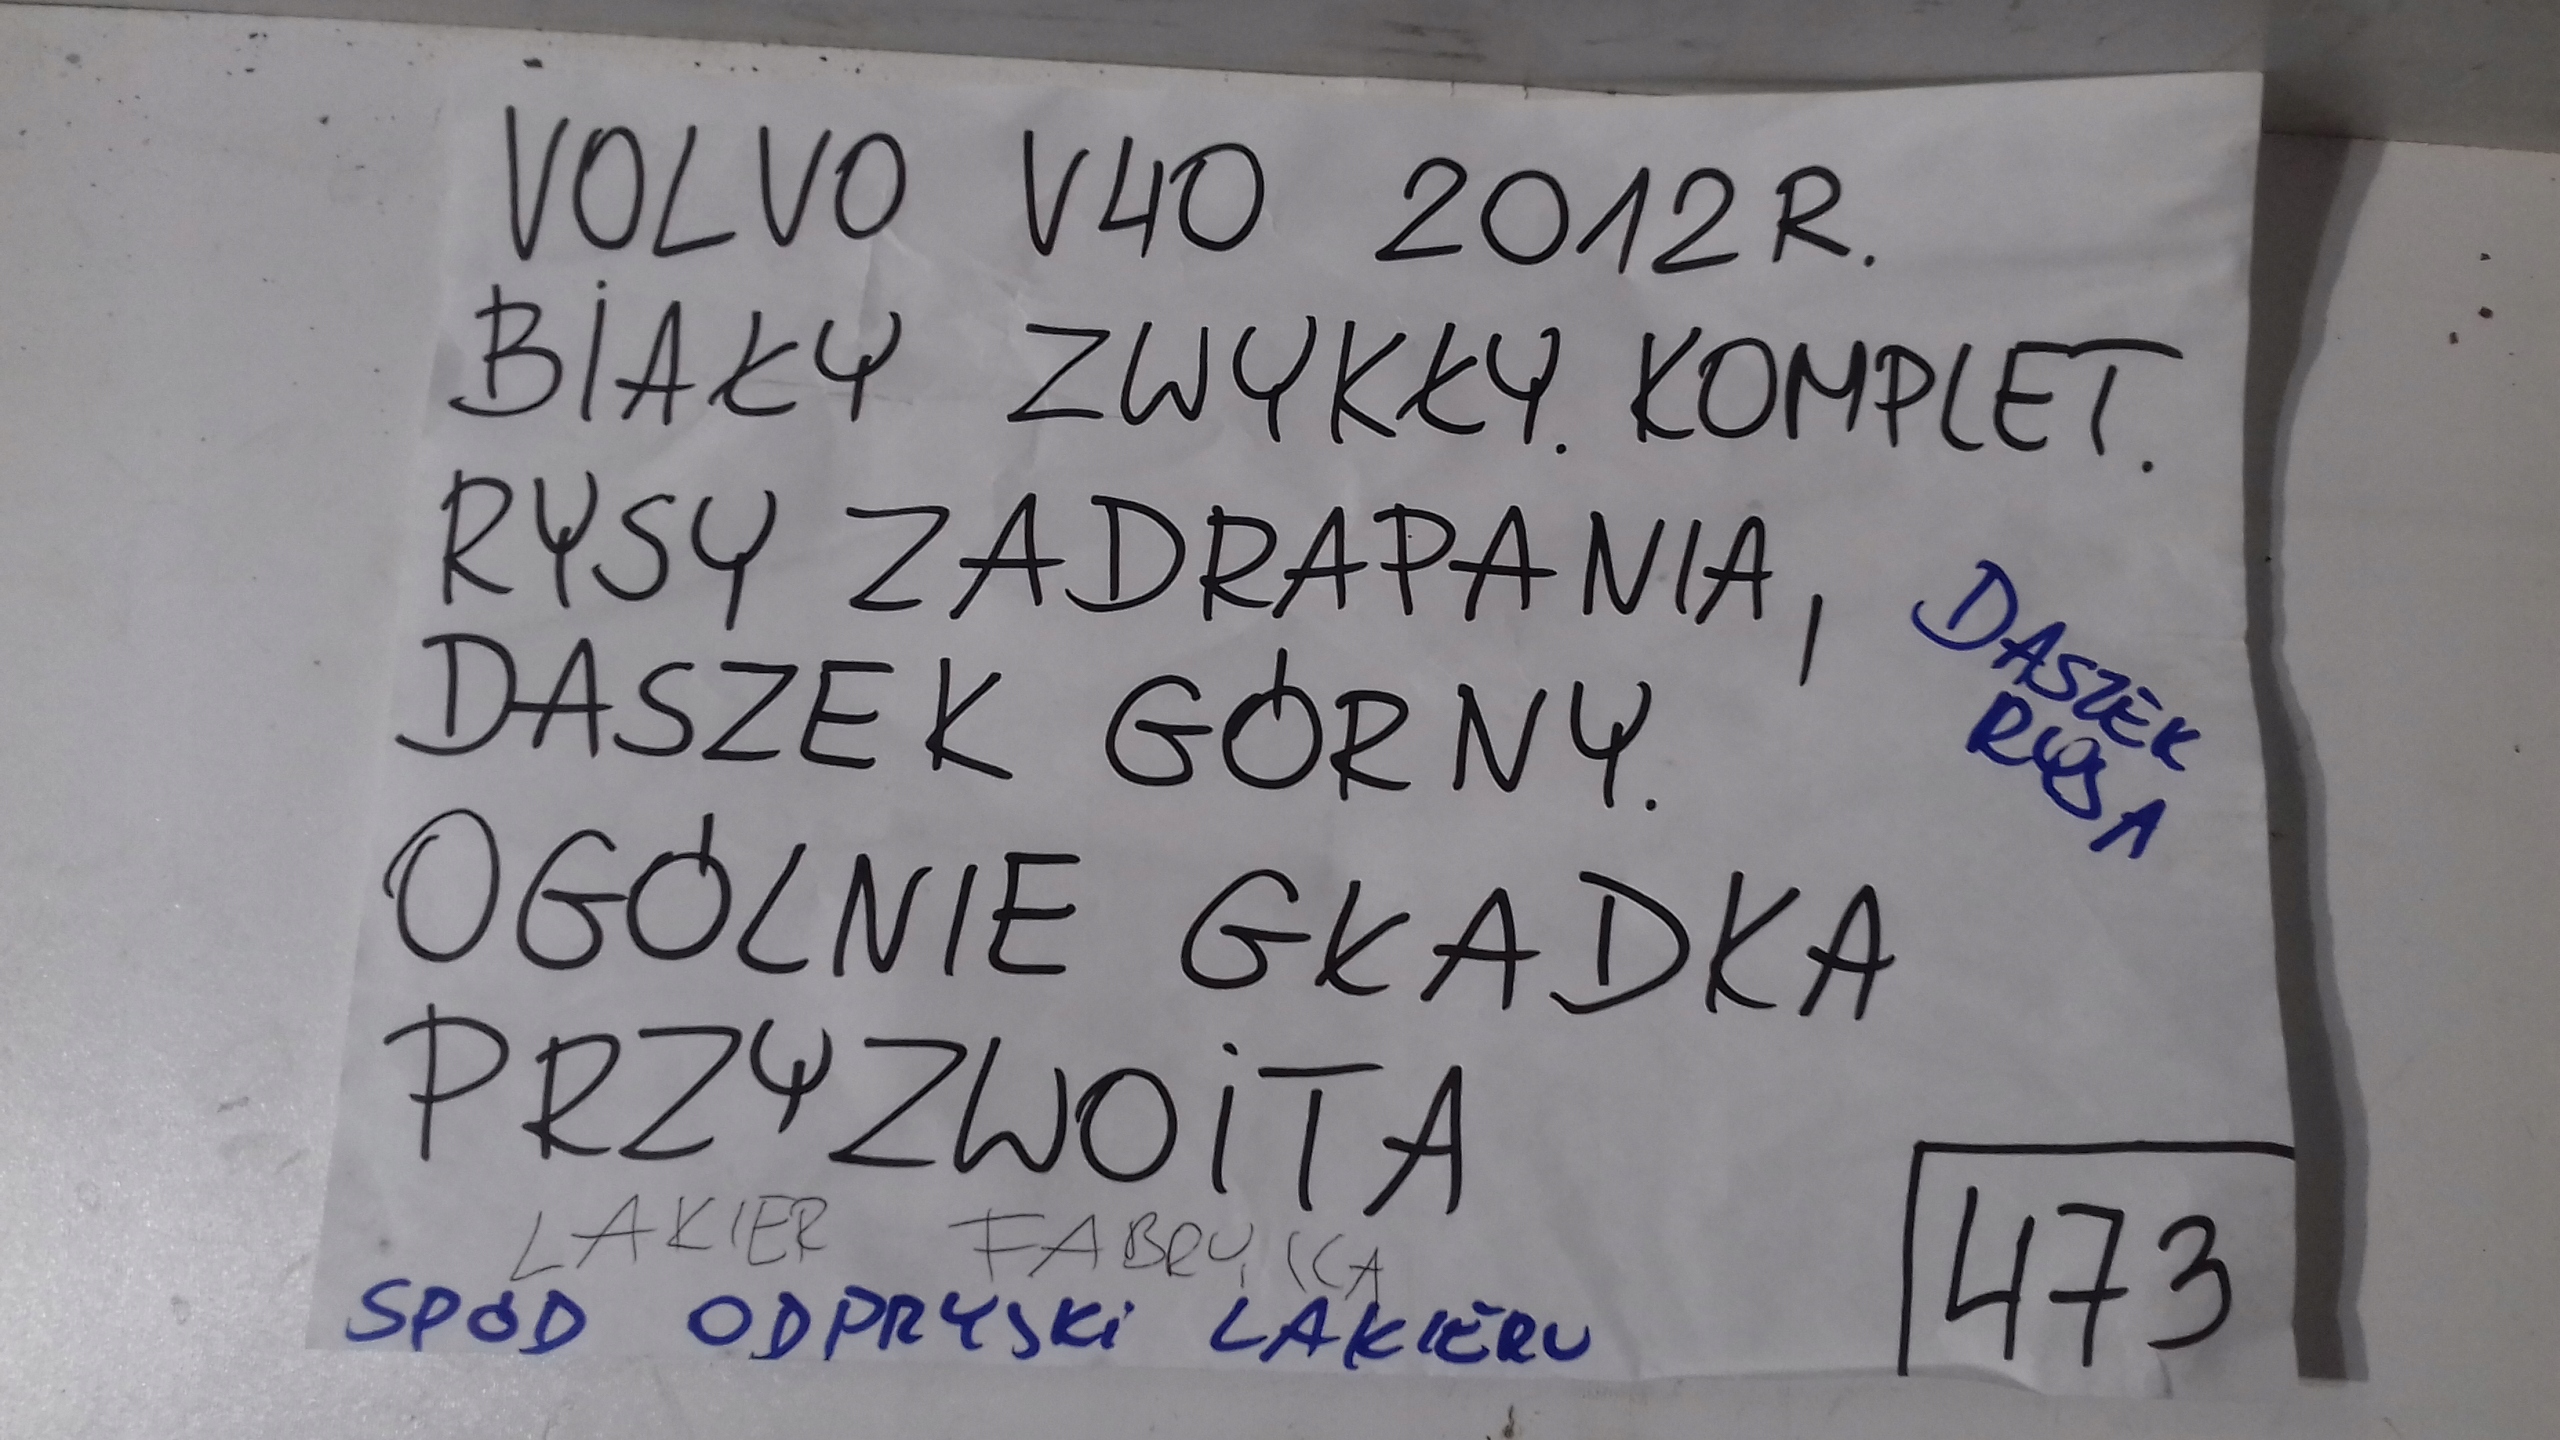 VOLVO V40 2012R.
BIAŁY ZWYKŁY. KOMPLET.
RYSY ZADRAPANIA,
DASZEK GÓRNY.
DASZEK
RYSA
OGÓLNIE GŁADKA
PRZYZWOITA
LAKIER FABRYKA
SPÓD ODPRYSKI LAKIERU
473